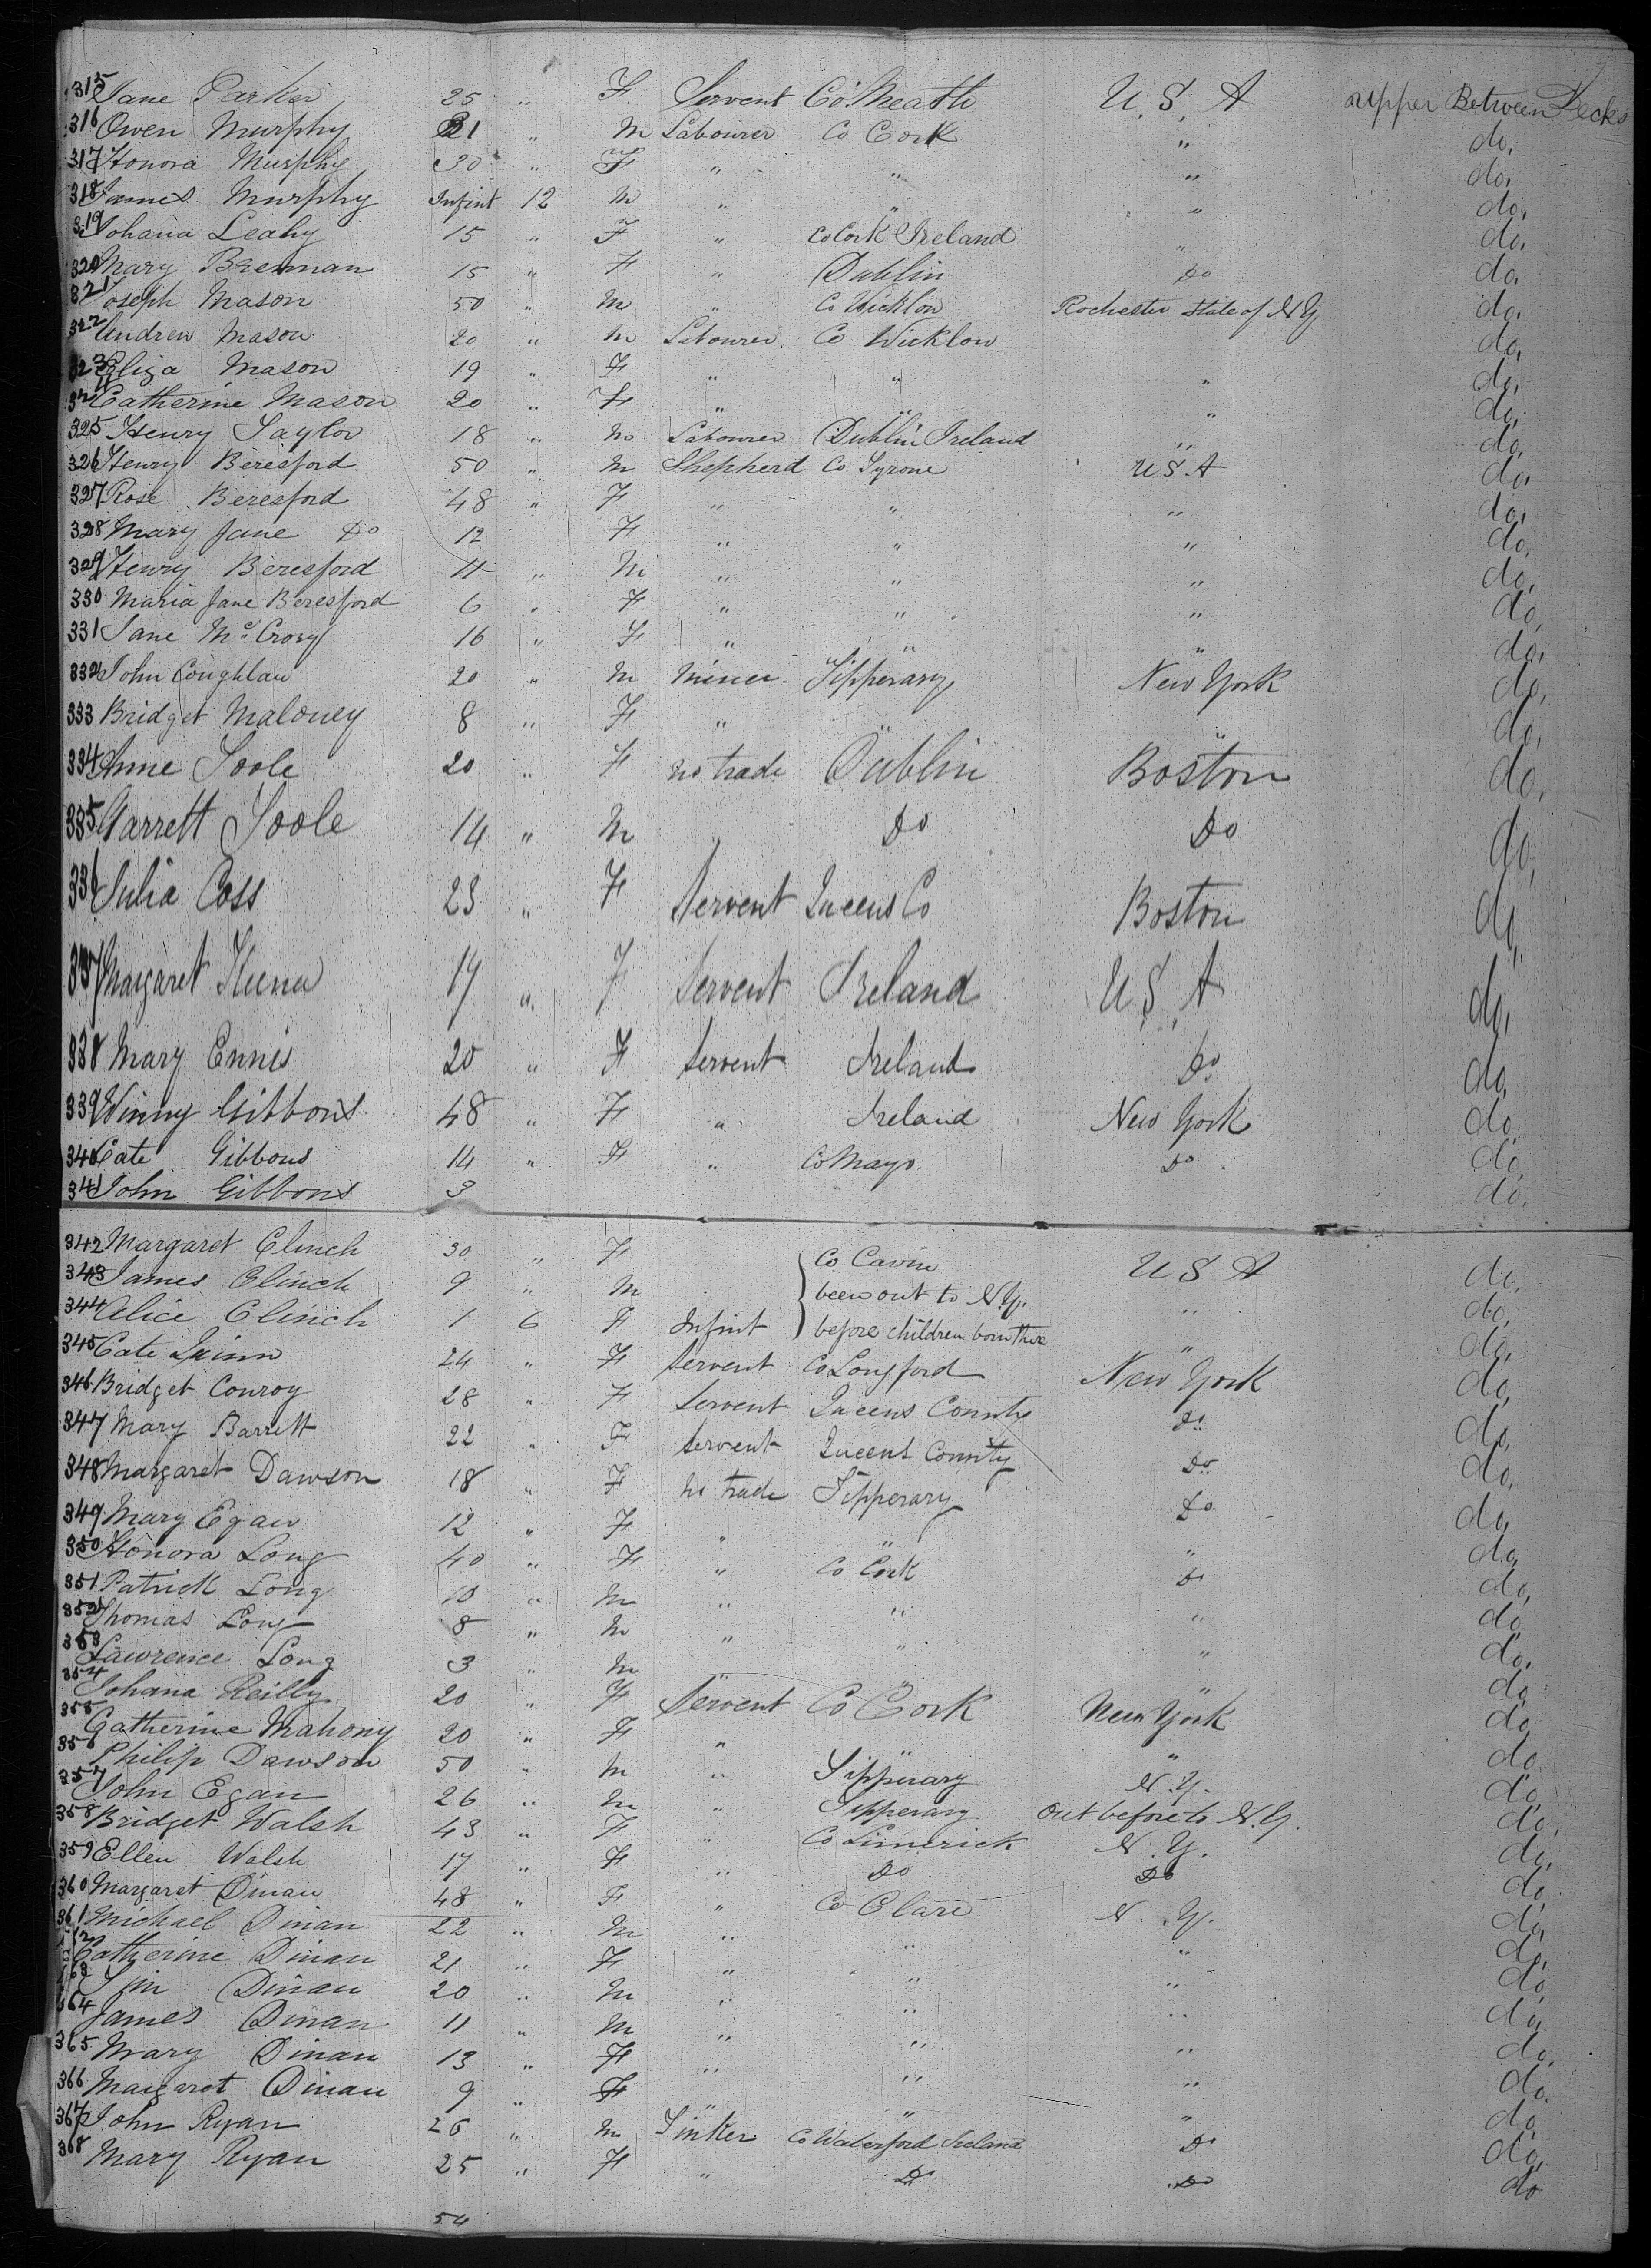 315 Jane Parker 25 " F Servent Co Meath U.S.A upper Between Decks
316 Owen Murphy 21 " M Labourer Co Cork " do.
317 Honora Murphy 30 " F " " " do.
318 James Murphy Infint 12 M " " " do.
319 Johana Leahy 15 " F " Co Cork Ireland " do.
320 Mary Brennan 15 " F " Dublin Do do.
321 Joseph Mason 50 " M " Co Wicklow Rochester State of N Y do.
322 Andrew Mason 20 " M Labourer Co Wicklow do.
323 Eliza Mason 19 " F " " " do.
324 Catherine Mason 20 " F " " " do.
325 Henry Taylor 18 " M Labourer Dublin Ireland " do.
326 Henry Beresford 50 " M Shepherd Co Tyrone U S. A do.
327 Rose Beresford 48 " F " " " do.
328 Mary Jane Do 12 F " " " do.
329 Henry Beresford 11 " M " " " do.
330 Maria Jane Beresford 6 " F " " " do.
331 Jane McCrory 16 " F " " " do.
332 John Coughlan 20 " M miner Tipperary New York do.
333 Bridget Maloney 8 " F " " " do.
334 Anne Toole 20 " F no trade Dublin Boston do.
335 Garrett Toole 14 " M " Do Do do.
336 Julia Coss 23 " F Servent Queens Co Boston do.
337 Margaret 19 " F Servent Ireland U.S.A do.
338 Mary Ennis 20 " F Servent Ireland Do do.
339 Winny Gibbons 48 " F " Ireland New York do.
340 Cate Gibbons 14 " F " Co Mayo Do do.
341 John Gibbons 3 do.
342 Margaret Clinch 30 " F Co Cavin U S A do.
343 James Clinch 9 " M been out to N.Y. " do.
344 Alice Clinch 1 6 F Infint before children born there " do.
345 Cate Quinn 24 " F Servent Co Longford New York do.
346 Bridget Conroy 28 " F Servent Queens County Do do.
347 Mary Barrett 22 " F Servent Queens County Do do.
348 Margaret Dawson 18 " F no trade Tipperary Do do.
349 Mary Egan 12 " F " " " do.
350 Honora Long 40 " F " Co Cork Do do.
351 Patrick Long 10 " M " " do.
352 Thomas Long 8 " M " " " do.
353 Lawrence Long 3 " M " " do.
354 Johana Reilly 20 " F Servent Co Cork New York do.
355 Catherine Mahony 20 " F " " " do.
356 Philip Dawson 50 " M " Tipperary N.Y. do.
357 John Egan 26 " M " Tipperary Out before to N.Y. do.
358 Bridget Walsh 43 " F " Co Limerick N.Y. do.
359 Ellen Walsh 17 " F " Do Do do.
360 Margaret Dinan 48 " F " Co Clare N.Y. do.
361 Michael Dinan 22 " M " " " do.
362 Catherine Dinan 21 " F " " " do.
363 Dinan 20 " M " " " do.
364 James Dinan 11 " M " " " do.
365 Mary Dinan 13 " F " " " do.
366 Margaret Dinan 9 " F " " " do.
367 John Ryan 26 " M Tinker Co Waterford Ireland Do do.
368 Mary Ryan 25 " F " Do Do do
54